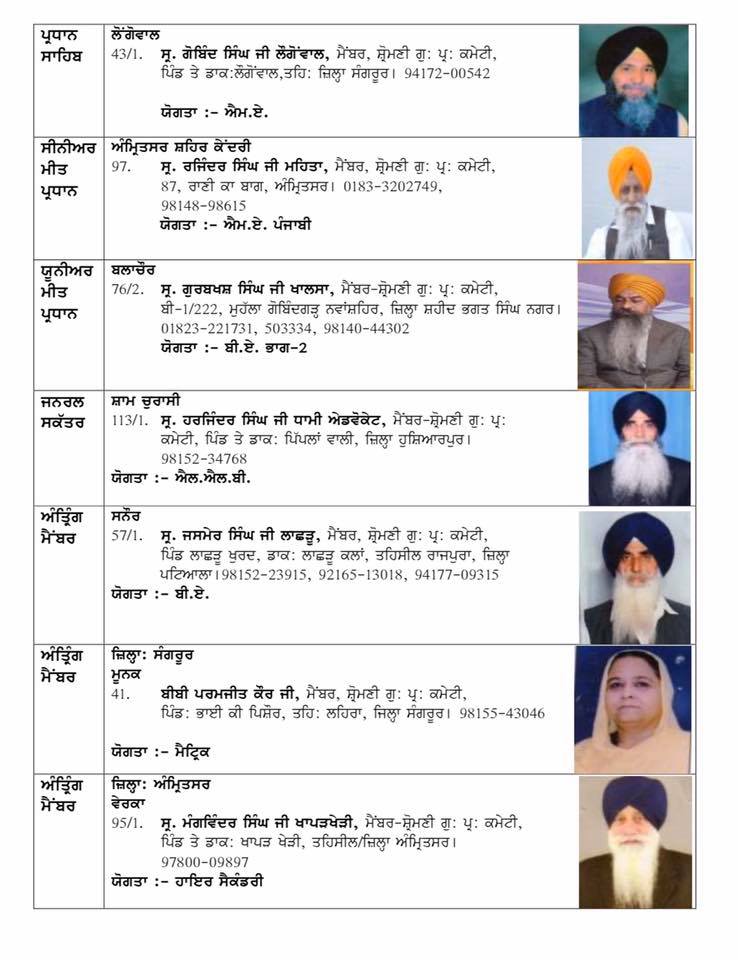 ਪ੍ਰਧਾਨ ਸਾਹਿਬ
ਲੋਂਗੋਵਾਲ
43/1. ਸ੍ਰ. ਗੋਬਿੰਦ ਸਿੰਘ ਜੀ ਲੌਗੋਂਵਾਲ, ਮੈਂਬਰ, ਸ਼੍ਰੋਮਣੀ ਗੁ: ਪ੍ਰ: ਕਮੇਟੀ,
ਪਿੰਡ ਤੇ ਡਾਕ:ਲੌਗੋਂਵਾਲ,ਤਹਿ: ਜ਼ਿਲ੍ਹਾ ਸੰਗਰੂਰ। 94172-00542
ਯੋਗਤਾ :- ਐਮ.ਏ.
ਸੀਨੀਅਰ ਮੀਤ ਪ੍ਰਧਾਨ
ਅੰਮ੍ਰਿਤਸਰ ਸ਼ਹਿਰ ਕੇਂਦਰੀ
97. ਸ੍ਰ. ਰਜਿੰਦਰ ਸਿੰਘ ਜੀ ਮਹਿਤਾ, ਮੈਂਬਰ, ਸ਼੍ਰੋਮਣੀ ਗੁ: ਪ੍ਰ: ਕਮੇਟੀ,
87, ਰਾਣੀ ਕਾ ਬਾਗ, ਅੰਮ੍ਰਿਤਸਰ। 0183-3202749,
98148-98615
ਯੋਗਤਾ :- ਐਮ.ਏ. ਪੰਜਾਬੀ
ਯੂਨੀਅਰ ਮੀਤ ਪ੍ਰਧਾਨ
ਬਲਾਚੌਰ
76/2. ਸ੍ਰ. ਗੁਰਬਖਸ਼ ਸਿੰਘ ਜੀ ਖਾਲਸਾ, ਮੈਂਬਰ-ਸ਼੍ਰੋਮਣੀ ਗੁ: ਪ੍ਰ: ਕਮੇਟੀ,
ਬੀ-1/222, ਮੁਹੱਲਾ ਗੋਬਿੰਦਗੜ੍ਹ ਨਵਾਂਸ਼ਹਿਰ, ਜ਼ਿਲ੍ਹਾ ਸ਼ਹੀਦ ਭਗਤ ਸਿੰਘ ਨਗਰ।
01823-221731, 503334, 98140-44302
ਯੋਗਤਾ :- ਬੀ.ਏ. ਭਾਗ-2
ਜਨਰਲ ਸਕੱਤਰ
ਸ਼ਾਮ ਚੁਰਾਸੀ
113/1. ਸ੍ਰ. ਹਰਜਿੰਦਰ ਸਿੰਘ ਜੀ ਧਾਮੀ ਐਡਵੋਕੇਟ, ਮੈਂਬਰ-ਸ਼੍ਰੋਮਣੀ ਗੁ: ਪ੍ਰ:
ਕਮੇਟੀ, ਪਿੰਡ ਤੇ ਡਾਕ: ਪਿੱਪਲਾਂ ਵਾਲੀ, ਜ਼ਿਲ੍ਹਾ ਹੁਸ਼ਿਆਰਪੁਰ।
98152-34768
ਯੋਗਤਾ :- ਐਲ.ਐਲ.ਬੀ.
ਅੰਤ੍ਰਿੰਗ ਮੈਂਬਰ
ਸਨੌਰ
57/1. ਸ੍ਰ. ਜਸਮੇਰ ਸਿੰਘ ਜੀ ਲਾਛੜੂ, ਮੈਂਬਰ, ਸ਼੍ਰੋਮਣੀ ਗੁ: ਪ੍ਰ: ਕਮੇਟੀ,
ਪਿੰਡ ਲਾਛੜੂ ਖੁਰਦ, ਡਾਕ: ਲਾਛੜੂ ਕਲਾਂ, ਤਹਿਸੀਲ ਰਾਜਪੁਰਾ, ਜ਼ਿਲ੍ਹਾ
ਪਟਿਆਲਾ।98152-23915, 92165-13018, 94177-09315
ਯੋਗਤਾ :- ਬੀ.ਏ.
ਅੰਤ੍ਰਿੰਗ ਮੈਂਬਰ
ਜ਼ਿਲ੍ਹਾ: ਸੰਗਰੂਰ
ਮੂਨਕ
41. ਬੀਬੀ ਪਰਮਜੀਤ ਕੌਰ ਜੀ, ਮੈਂਬਰ, ਸ਼੍ਰੋਮਣੀ ਗੁ: ਪ੍ਰ: ਕਮੇਟੀ,
ਪਿੰਡ: ਭਾਈ ਕੀ ਪਿਸ਼ੌਰ, ਤਹਿ: ਲਹਿਰਾ, ਜਿਲ੍ਹਾ ਸੰਗਰੂਰ। 98155-43046
ਯੋਗਤਾ :- ਮੈਟ੍ਰਿਕ
ਅੰਤ੍ਰਿੰਗ ਮੈਂਬਰ
ਜ਼ਿਲ੍ਹਾ: ਅੰਮ੍ਰਿਤਸਰ
ਵੇਰਕਾ
95/1. ਸ੍ਰ. ਮੰਗਵਿੰਦਰ ਸਿੰਘ ਜੀ ਖਾਪੜਖੇੜੀ, ਮੈਂਬਰ-ਸ਼੍ਰੋਮਣੀ ਗੁ: ਪ੍ਰ: ਕਮੇਟੀ,
ਪਿੰਡ ਤੇ ਡਾਕ: ਖਾਪੜ ਖੇੜੀ, ਤਹਿਸੀਲ/ਜ਼ਿਲ੍ਹਾ ਅੰਮ੍ਰਿਤਸਰ।
97800-09897
ਯੋਗਤਾ :- ਹਾਇਰ ਸੈਕੰਡਰੀ